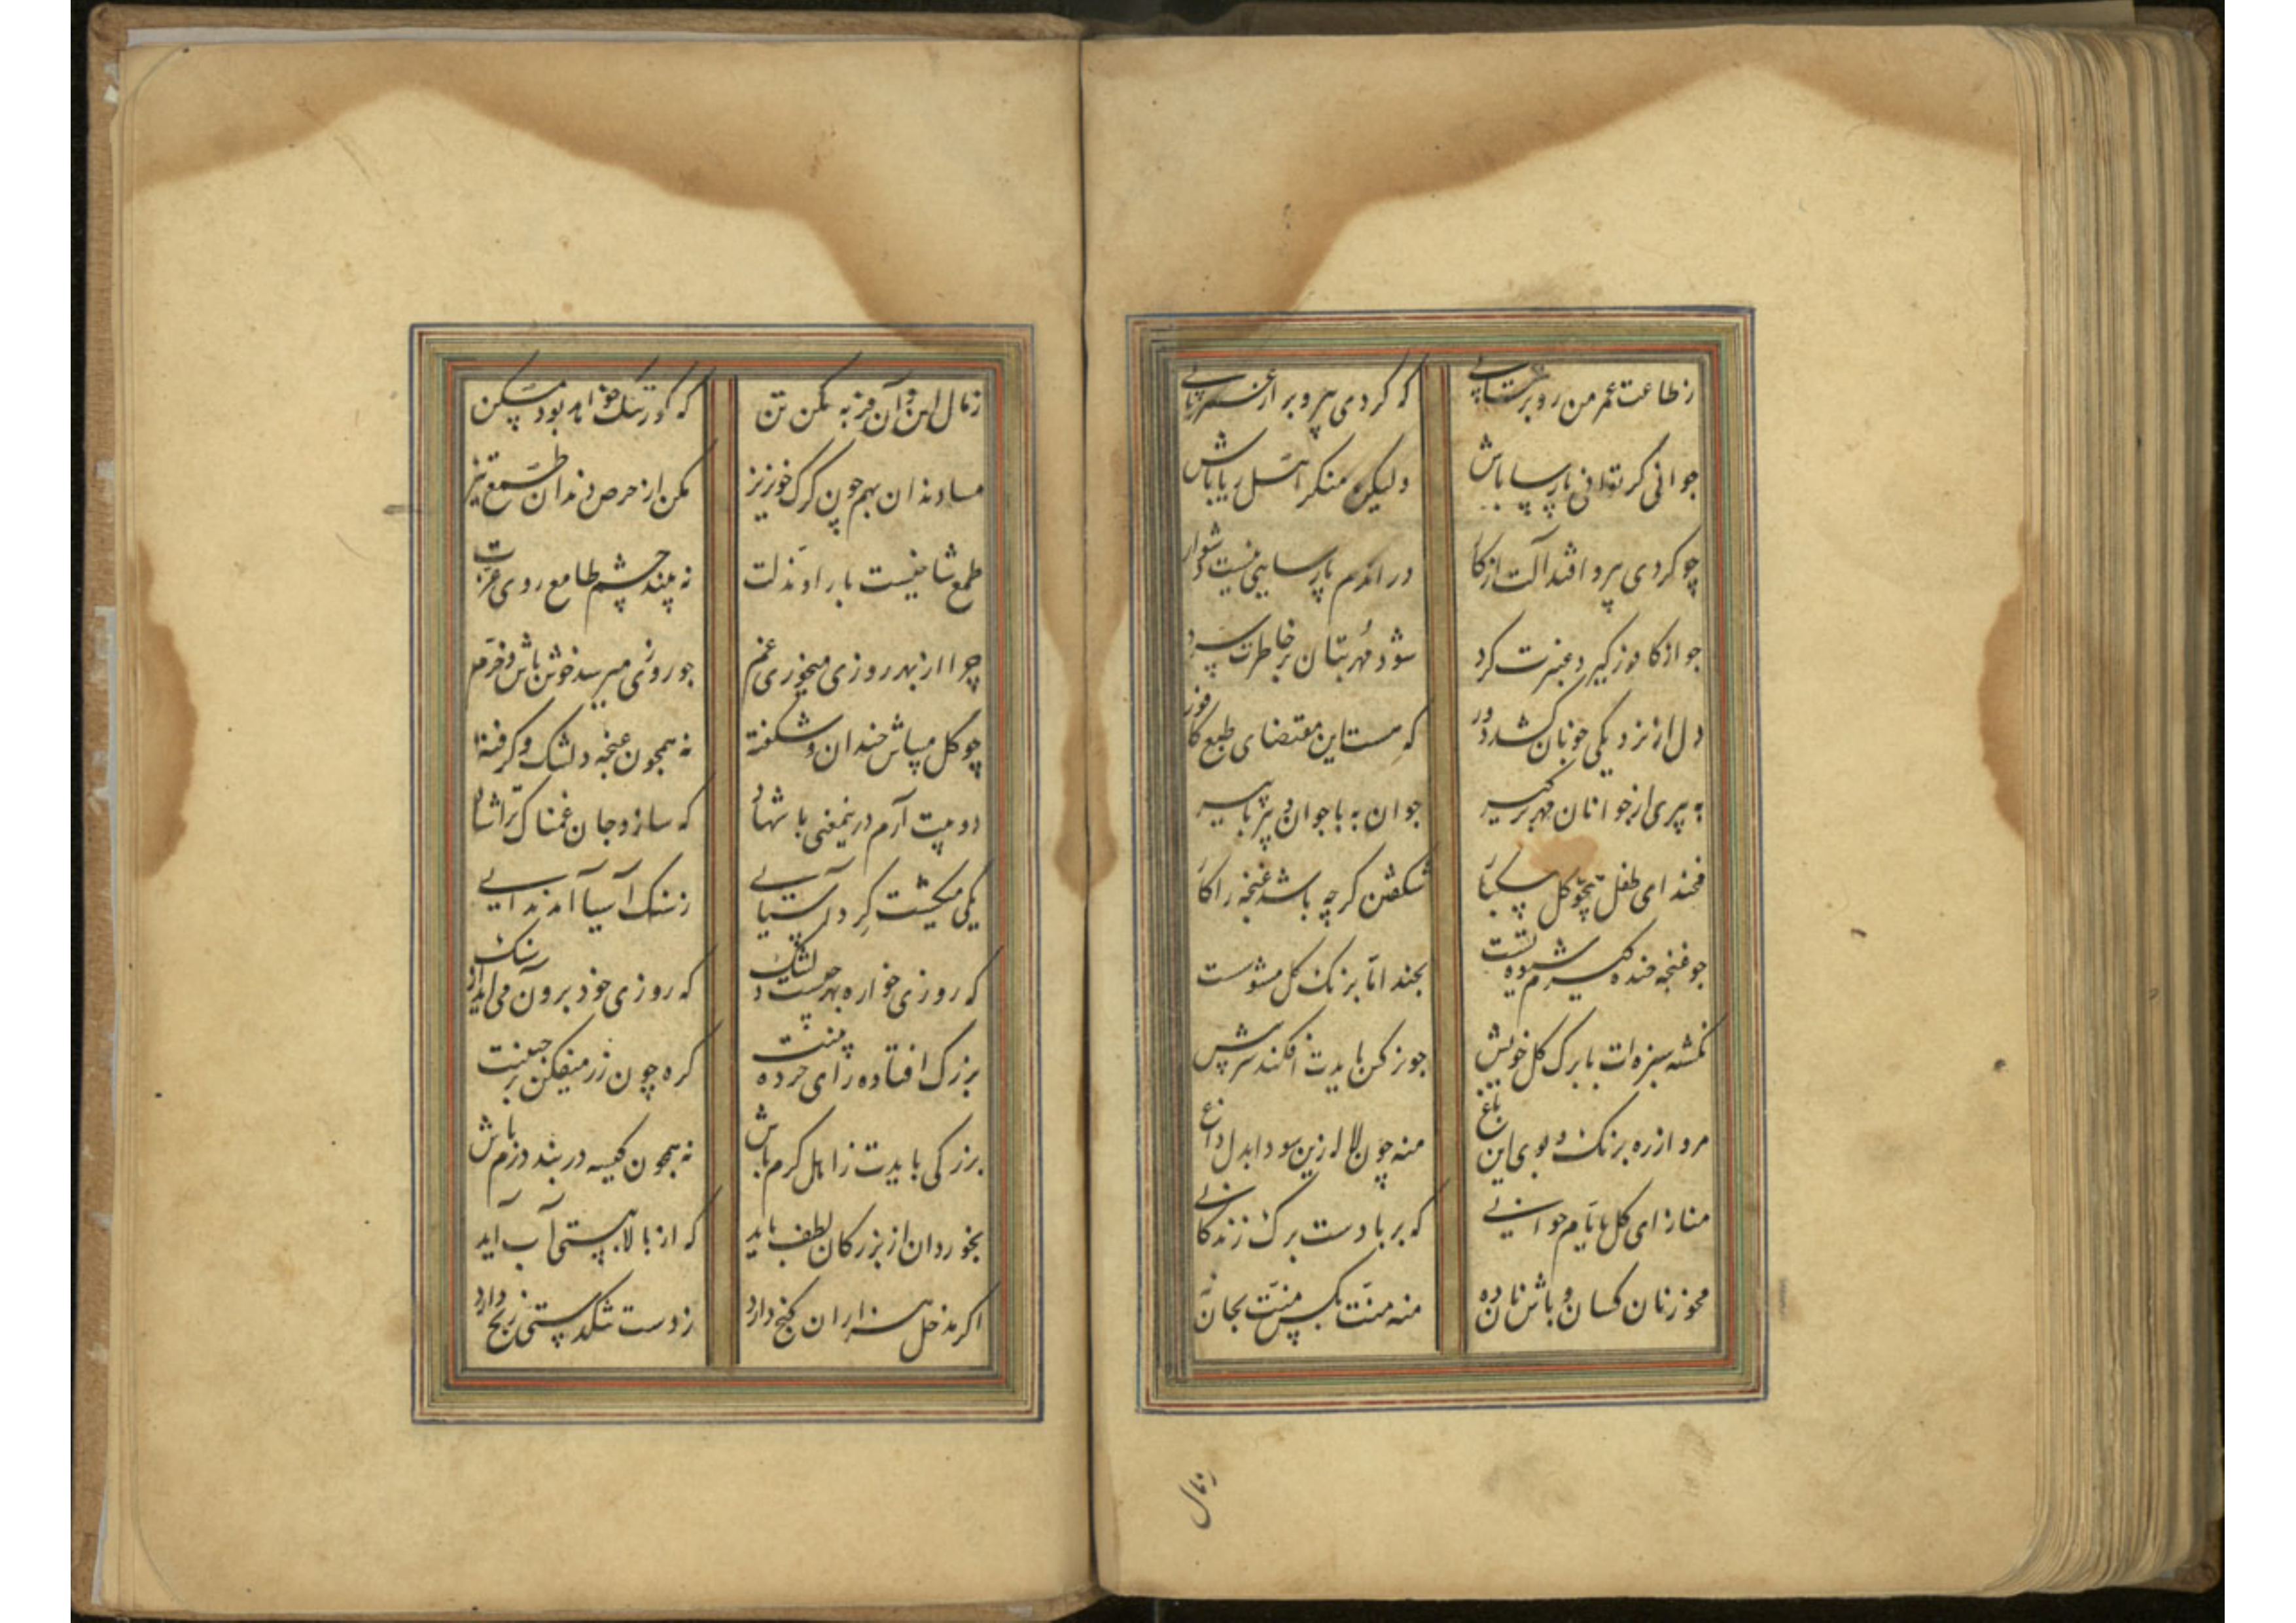 ز طاعت عمر من رو بر شتابی که کردی پیر و بر از عمر نیابی
جوانی کر توانی پارسا باش ولیکن منکر اهل ریا باش
چو کردی پیر و افتد آلت از کار در اندم پارسایی نیست دشوار
جو از کافور کیرد عنبرت کرد شود مهر بتان بر خاطرت سرد
دل از نزدیکی خوبان شد دور که هست این مقتضای طبع کافور
به پیری از جوانان مهر بر کیر جوان به با جوان و پیر با پیر
مخند ای طفل همچو کل بیکبار شکفتن کرچه باشد غنجه را کار
جو غنجه خنده کیرم شیوه تست بخند اما برنک کل مشو سست
نکشته سبزه ات با برک کل خویش جو نرکس بایدت افکند سر پیش
مرو از ره برنک و بوی این باغ منه چون لاله زین سودا بدل داغ
مناز ای کل بایام جوانی که بر بادست برک زندکانی
مخور نان کسان و باش نان ده منه منت بکس منت بجان نه
زمال
زمال این و آن فربه مکن تن که کور تنک خواهد بود مسکن
مساو دندان بهم چون کرک خونریز مکن از حرص دندان طمع تیز
طمع شاخیست بار او مذلت نه بیند چشم طامع روی عزت
چرا از بهر روزی میخوری غم جو روزی میرسد خوش باش و خرم
چو کل میباش خندان و شکفته نه همچون غنجه دلتنک و کرفته
دو بیت آرم درینمعنی باشهاد که سازد جان غمناک ترا شاد
یکی میکشت کرد آسیایی ز سنک آسیا آمد ندایی
که روزی خواره بهر جیست دلتنک که روزی خود برون می آید از سنک
بزرک افتاده رای خرده بینت کره چون زر میفکن بر جبینت
بزرکی بایدت ز اهل کرم باش نه همچون کیسه در بند درم باش
بخوردان از بزرکان لطف باید که از بالا به پستی آب آید
اکر مدخل هزاران کنج دارد ز دست تنکدستی رنج دارد